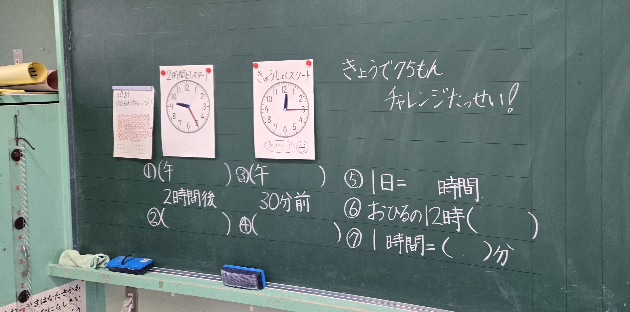 2時間目スタート
きゅうしょくスタート
きょうで75もん
チャレンジたっせい!
①(午　　　)
2時間後
②(　　　)
③(午　　　)
30分前
④(　　　)
⑤1日=　時間
⑥おひるの12時(　　　)
⑦1時間=(　　)分